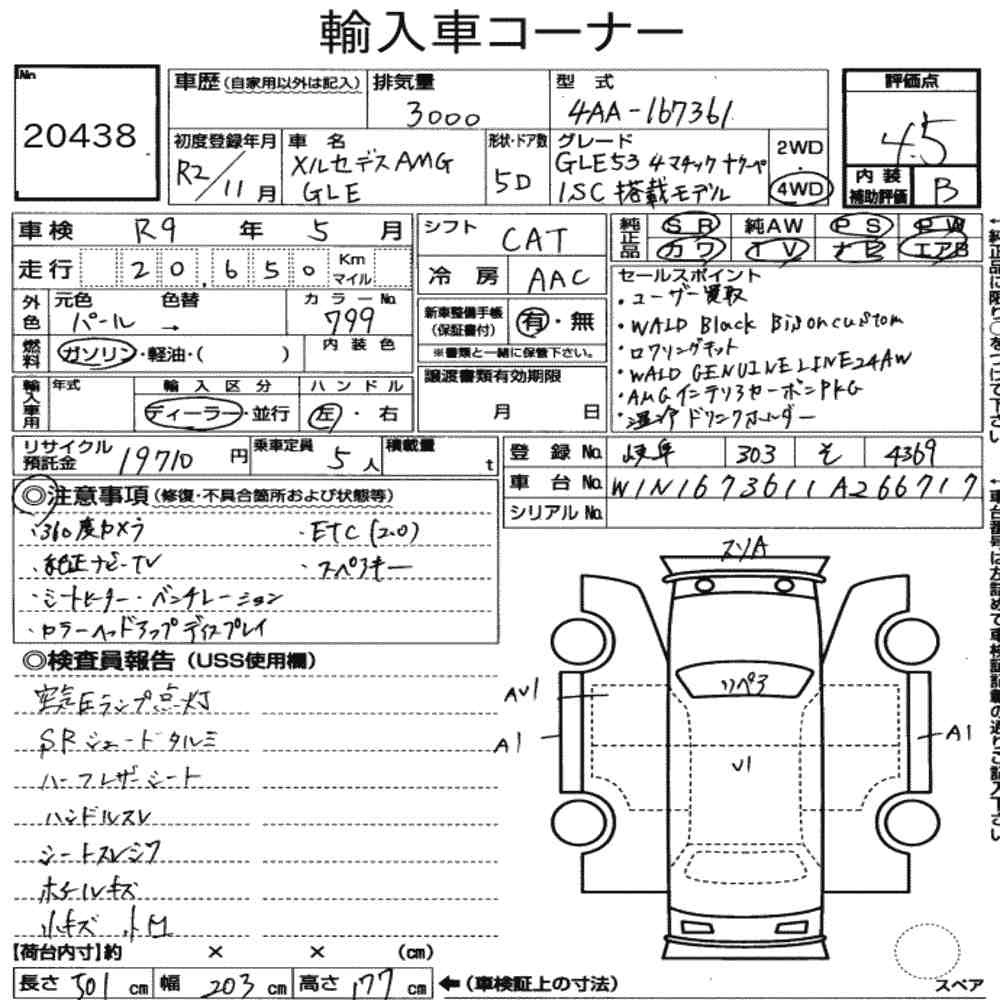 輸入車コーナー
No. 20438
車歴(自家用以外は記入)
排気量 3000
型式 4AA-167361
評価点 4.5
初度登録年月 R2/11月
車名 メルセデスAMG
GLE
形状・ドア数 5D
グレード
GLE53 4マチック+クーペ
ISC搭載モデル
2WD
4WD
内装
補助評価 B
車検 R9年 5月
走行 20,650 Km マイル
外色 元色 パール → 色替 カラーNo. 799
燃料 ガソリン・軽油・( ) 内装色
輸入車用 年式 輸入区分 ディーラー・並行 ハンドル 左・右
シフト CAT
冷房 AAC
新車整備手帳
(保証書付) 有・無
※書類と一緒に保管下さい。
譲渡書類有効期限
月 日
純正品 SR 純AW PS PW
カワ TV ナビ エアB
←純正品に限り○をつけて下さい
セールスポイント
・ユーザー買取
・WALD Black Bison custom
・ロワリングキット
・WALD GENUINE LINE 24AW
・AMGインテリアカーボンPKG
・温冷ドリンクホルダー
リサイクル
預託金 19710円
乗車定員 5人
積載量 t
登録No. 岐阜 303 そ 4369
車台No. W1N1673611A266717
シリアルNo.
←車台番号は左詰めで車検証記載の通りご記入下さい
◎注意事項(修復・不具合箇所および状態等)
・360度カメラ ・ETC(2.0)
・純正ナビ・TV ・スペアキー
・シートヒーター・ベンチレーション
・カラーヘッドアップディスプレイ
◎検査員報告(USS使用欄)
空気圧ランプ点灯
SRシェードタルミ
ハーフレザーシート
ハンドルスレ
シートスレシワ
ホイールキズ
小キズ 小凹
スリA
リペア
AU1
A1
U1
A1
【荷台内寸】約 × × (cm)
長さ 501cm 幅 203cm 高さ 177cm ←(車検証上の寸法)
スペア